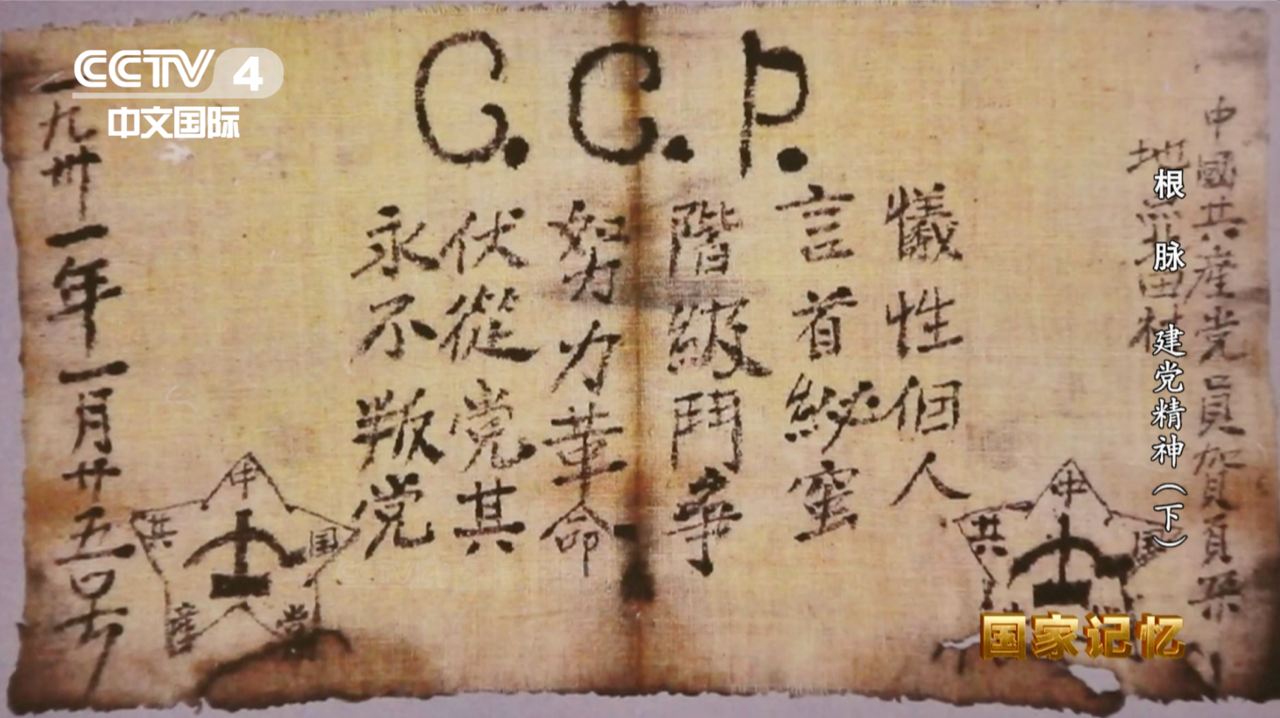 CCTV 4
中文国际
C.C.P.
中國共產党員賀頁朶
地點北田村
犠性個人
言首秘蜜
階級鬥爭
努力革命
伏從党其
永不叛党
一九卅一年一月廿五号
中
国
共
中
共
国
產
党
根 脉 建党精神（下）
国家记忆